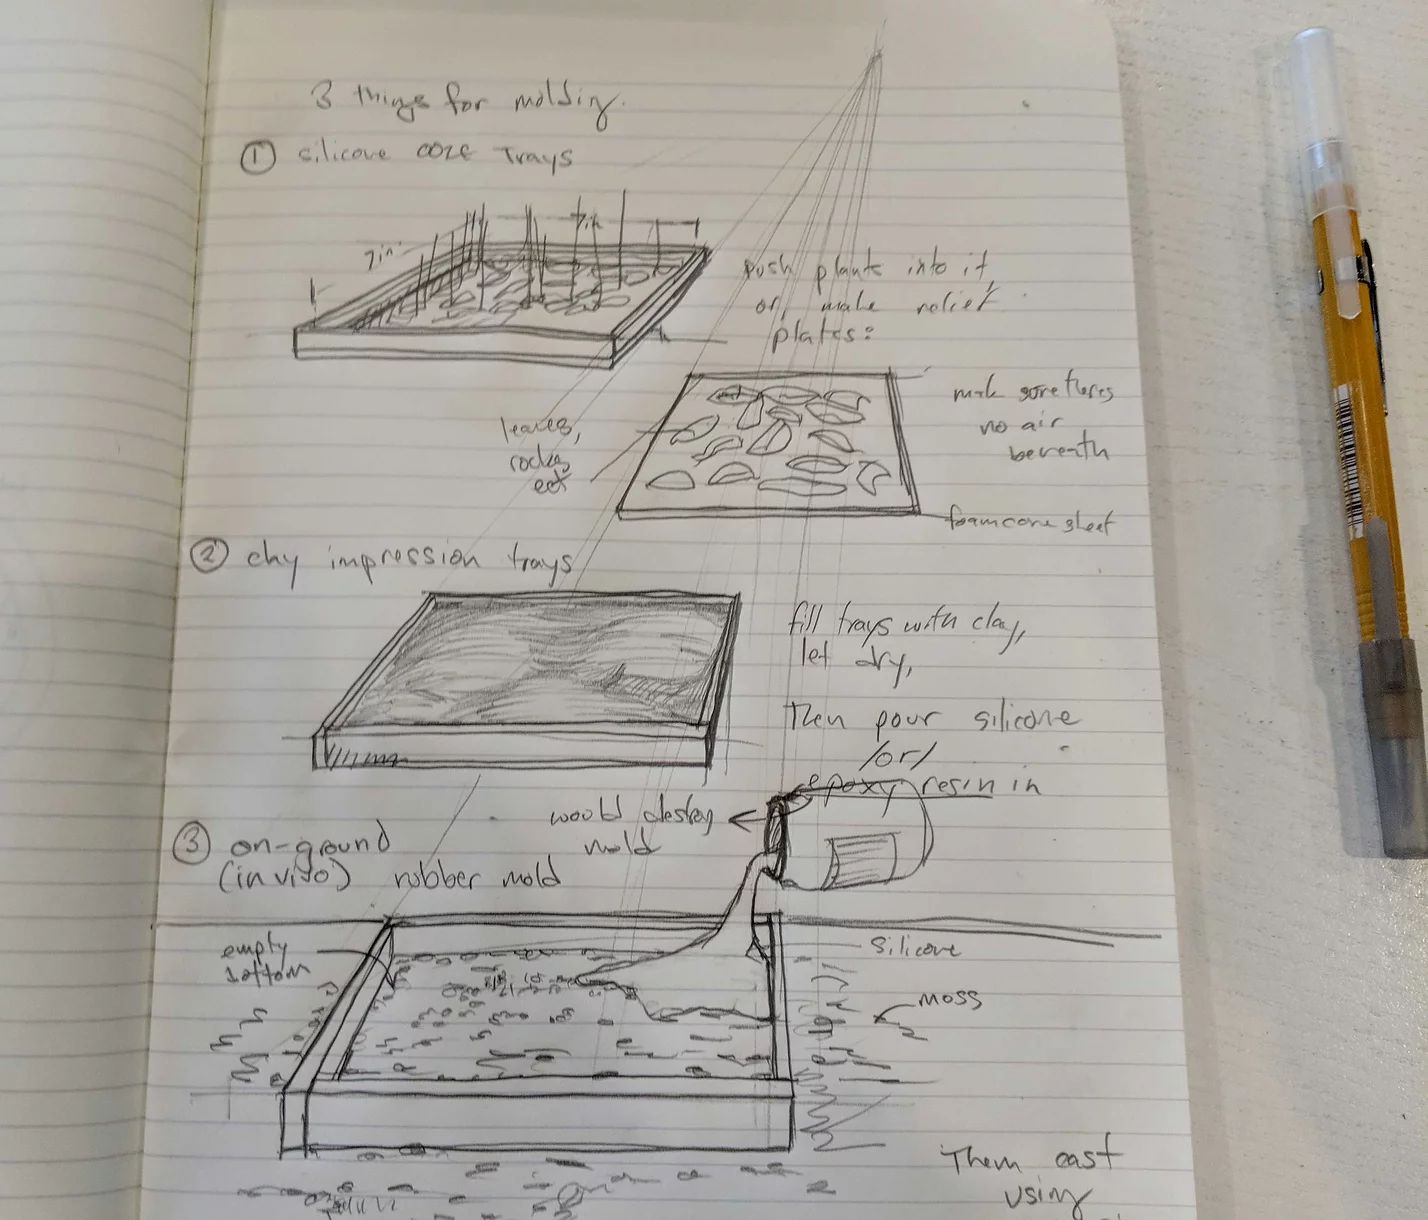 3 things for molding.
① silicone ooze trays
7in
7in
push plants into it,
or, make relief
plates:
leaves,
rocks,
ect
make sure theres
no air
beneath
foamcore sheet
② clay impression trays
fill trays with clay,
let dry,
Then pour silicone
/or/
epoxy resin in
would destroy
mold
③ on-ground
(in vivo) rubber mold
empty
bottom
silicone
moss
Them cast
using